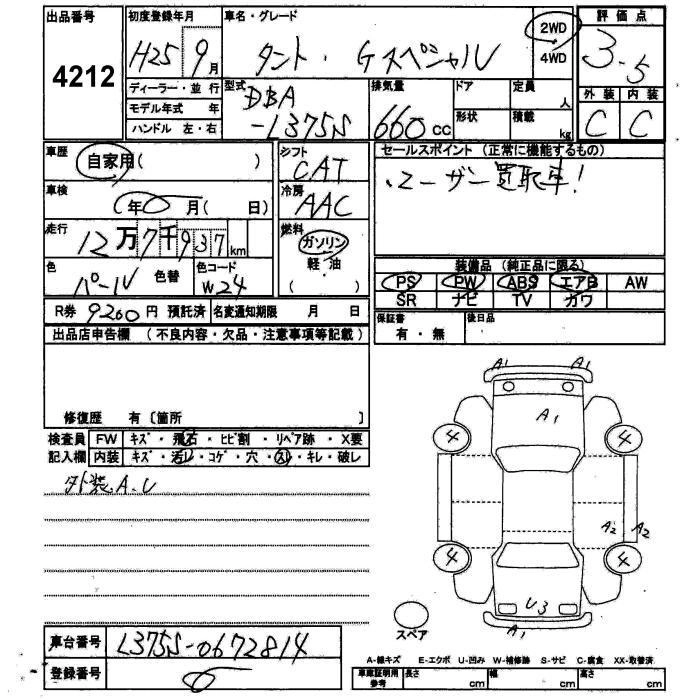 出品番号
4212
初度登録年月
H25 9月
ディーラー・並行
モデル年式 年
ハンドル 左・右
車名・グレード
タント・Gスペシャル
2WD
4WD
型式
DBA
-L375S
排気量
660cc
ドア
形状
定員
人
積載
kg
評価点
3.5
外装 内装
C C
車歴
自家用( )
車検
(年 月( 日)
走行
12万7千937km
色
パール 色替
色コード
W24
シフト
CAT
冷房
AAC
燃料
ガソリン
軽・油
( )
セールスポイント (正常に機能するもの)
・ユーザー買取車!
装備品 (純正品に限る)
PS PW ABS エアB AW
SR ナビ TV カワ
R券 9200円 預託済 名変通知期限 月 日
保証書
有・無
後日品
出品店申告欄 (不良内容・欠品・注意事項等記載)
修復歴 有〔箇所 〕
検査員 FW キズ・飛石・ヒビ割・リペア跡・X要
記入欄 内装 キズ・汚レ・コゲ・穴・スレ・キレ・破レ
外装A.U
A1 A1
A1
4 4
A2 A2
4 4
U3
A1
スペア
車台番号 L375S-0672814
登録番号
A-線キズ E-エクボ U-凹み W-補修跡 S-サビ C-腐食 XX-取替済
車庫証明用
参考
長さ cm 幅 cm 高さ cm